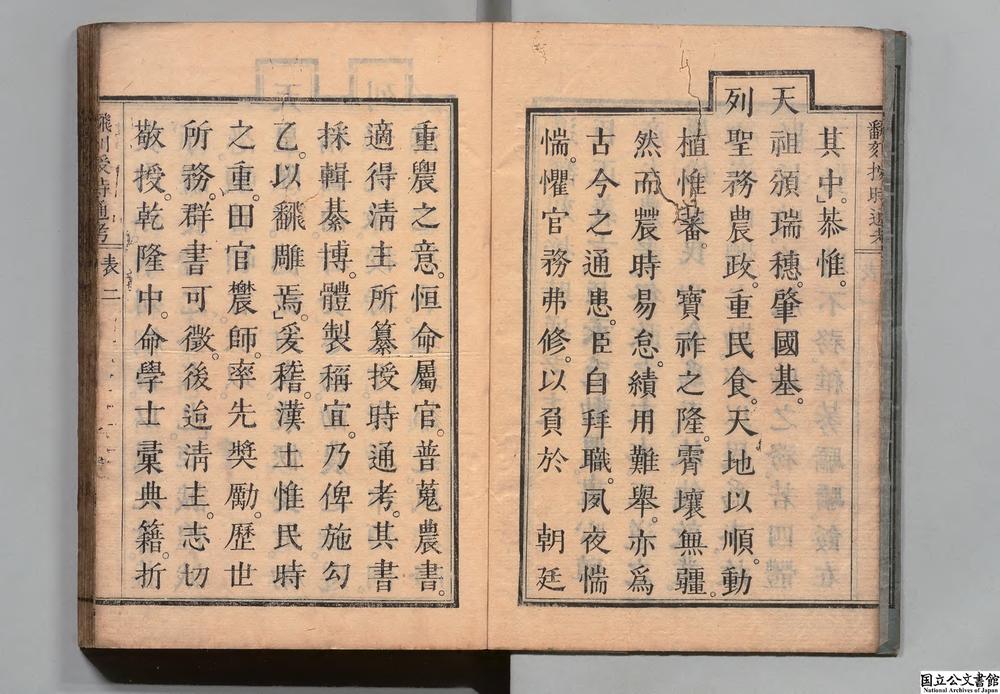 其中。恭惟。
天祖頒瑞穗。肇國基。
列聖務農政。重民食。天地以順。動
植惟蕃。寶祚之隆。霄壤無疆。
然而農時易怠。績用難舉。亦爲
古今之通患。臣自拜職。夙夜惴
惴。懼官務弗修。以負於 朝廷
重農之意。恒命屬官。普蒐農書。
適得淸主所纂授時通考。其書
採輯綦博。體製稱宜。乃俾施勾
乙。以飜雕焉。爰稽漢土惟民時
之重。田官農師。率先奬勵。歷世
所務。群書可徵。後迨淸主。志切
敬授。乾隆中。命學士彙典籍。折
飜刻授時通考
表 二
国立公文書館
National Archives of Japan